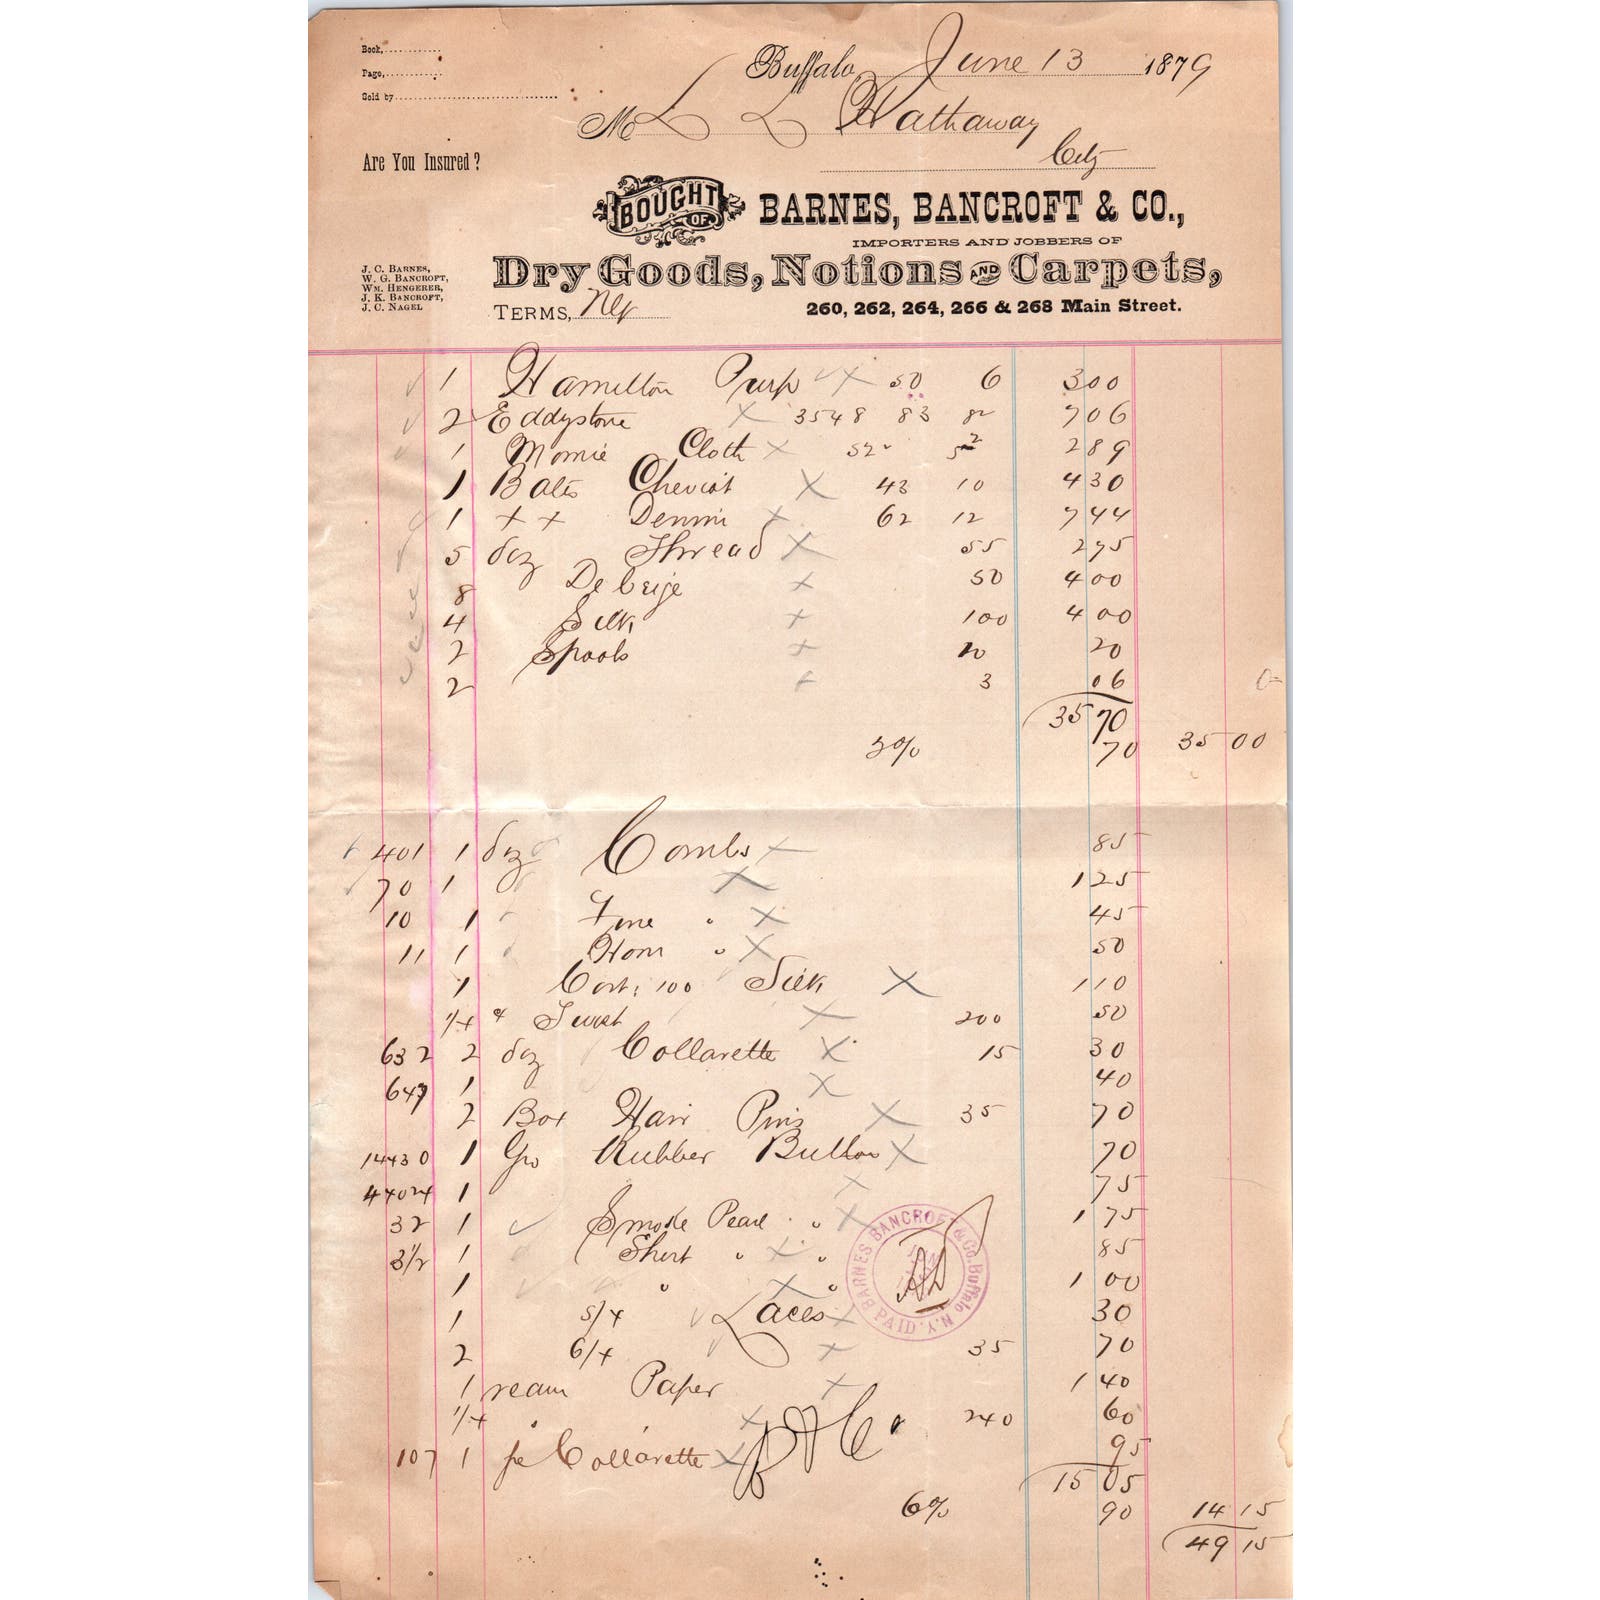 Book,
Page,
Sold by
Buffalo, June 13 1879
M L L Hathaway
City
Are You Insured?
BOUGHT OF BARNES, BANCROFT & CO.,
IMPORTERS AND JOBBERS OF
Dry Goods, Notions AND Carpets,
J. C. BARNES,
W. G. BANCROFT,
WM. HENGERER,
J. K. BANCROFT,
J. C. NAGEL
TERMS,
260, 262, 264, 266 & 268 Main Street.
1 Hamilton Purp 50 6 300
2 Eddystone 3548 83 8½ 706
1 Momie Cloth 52 289
1 Bates Cheviot 43 10 430
1 ++ Denim 62 12 744
5 doz Thread 55 275
8 De beige 50 400
4 Silk 100 400
2 Spools 10 20
2 3 06
35 70
70 35 00
401 1 doz Combs 85
70 1 125
10 1 Fine " 45
11 1 Horn " 50
1 100 Silk 110
1/4 Twist 200 50
632 2 doz Collarette 15 30
647 1 40
2 Box Hair Pins 35 70
14430 1 Gro Rubber Button 70
44024 1 75
32 1 Smoke Pearl " 1 75
3 1/2 1 Shirt " " 85
1 " " 1 00
1 5/4 Laces 30
2 6/4 35 70
1 ream Paper 1 40
1/4 240 60
107 1 Collarette 95
B B & Co
15 05
6% 90 14 15
49 15
BARNES BANCROFT & Co. Buffalo N.Y. PAID